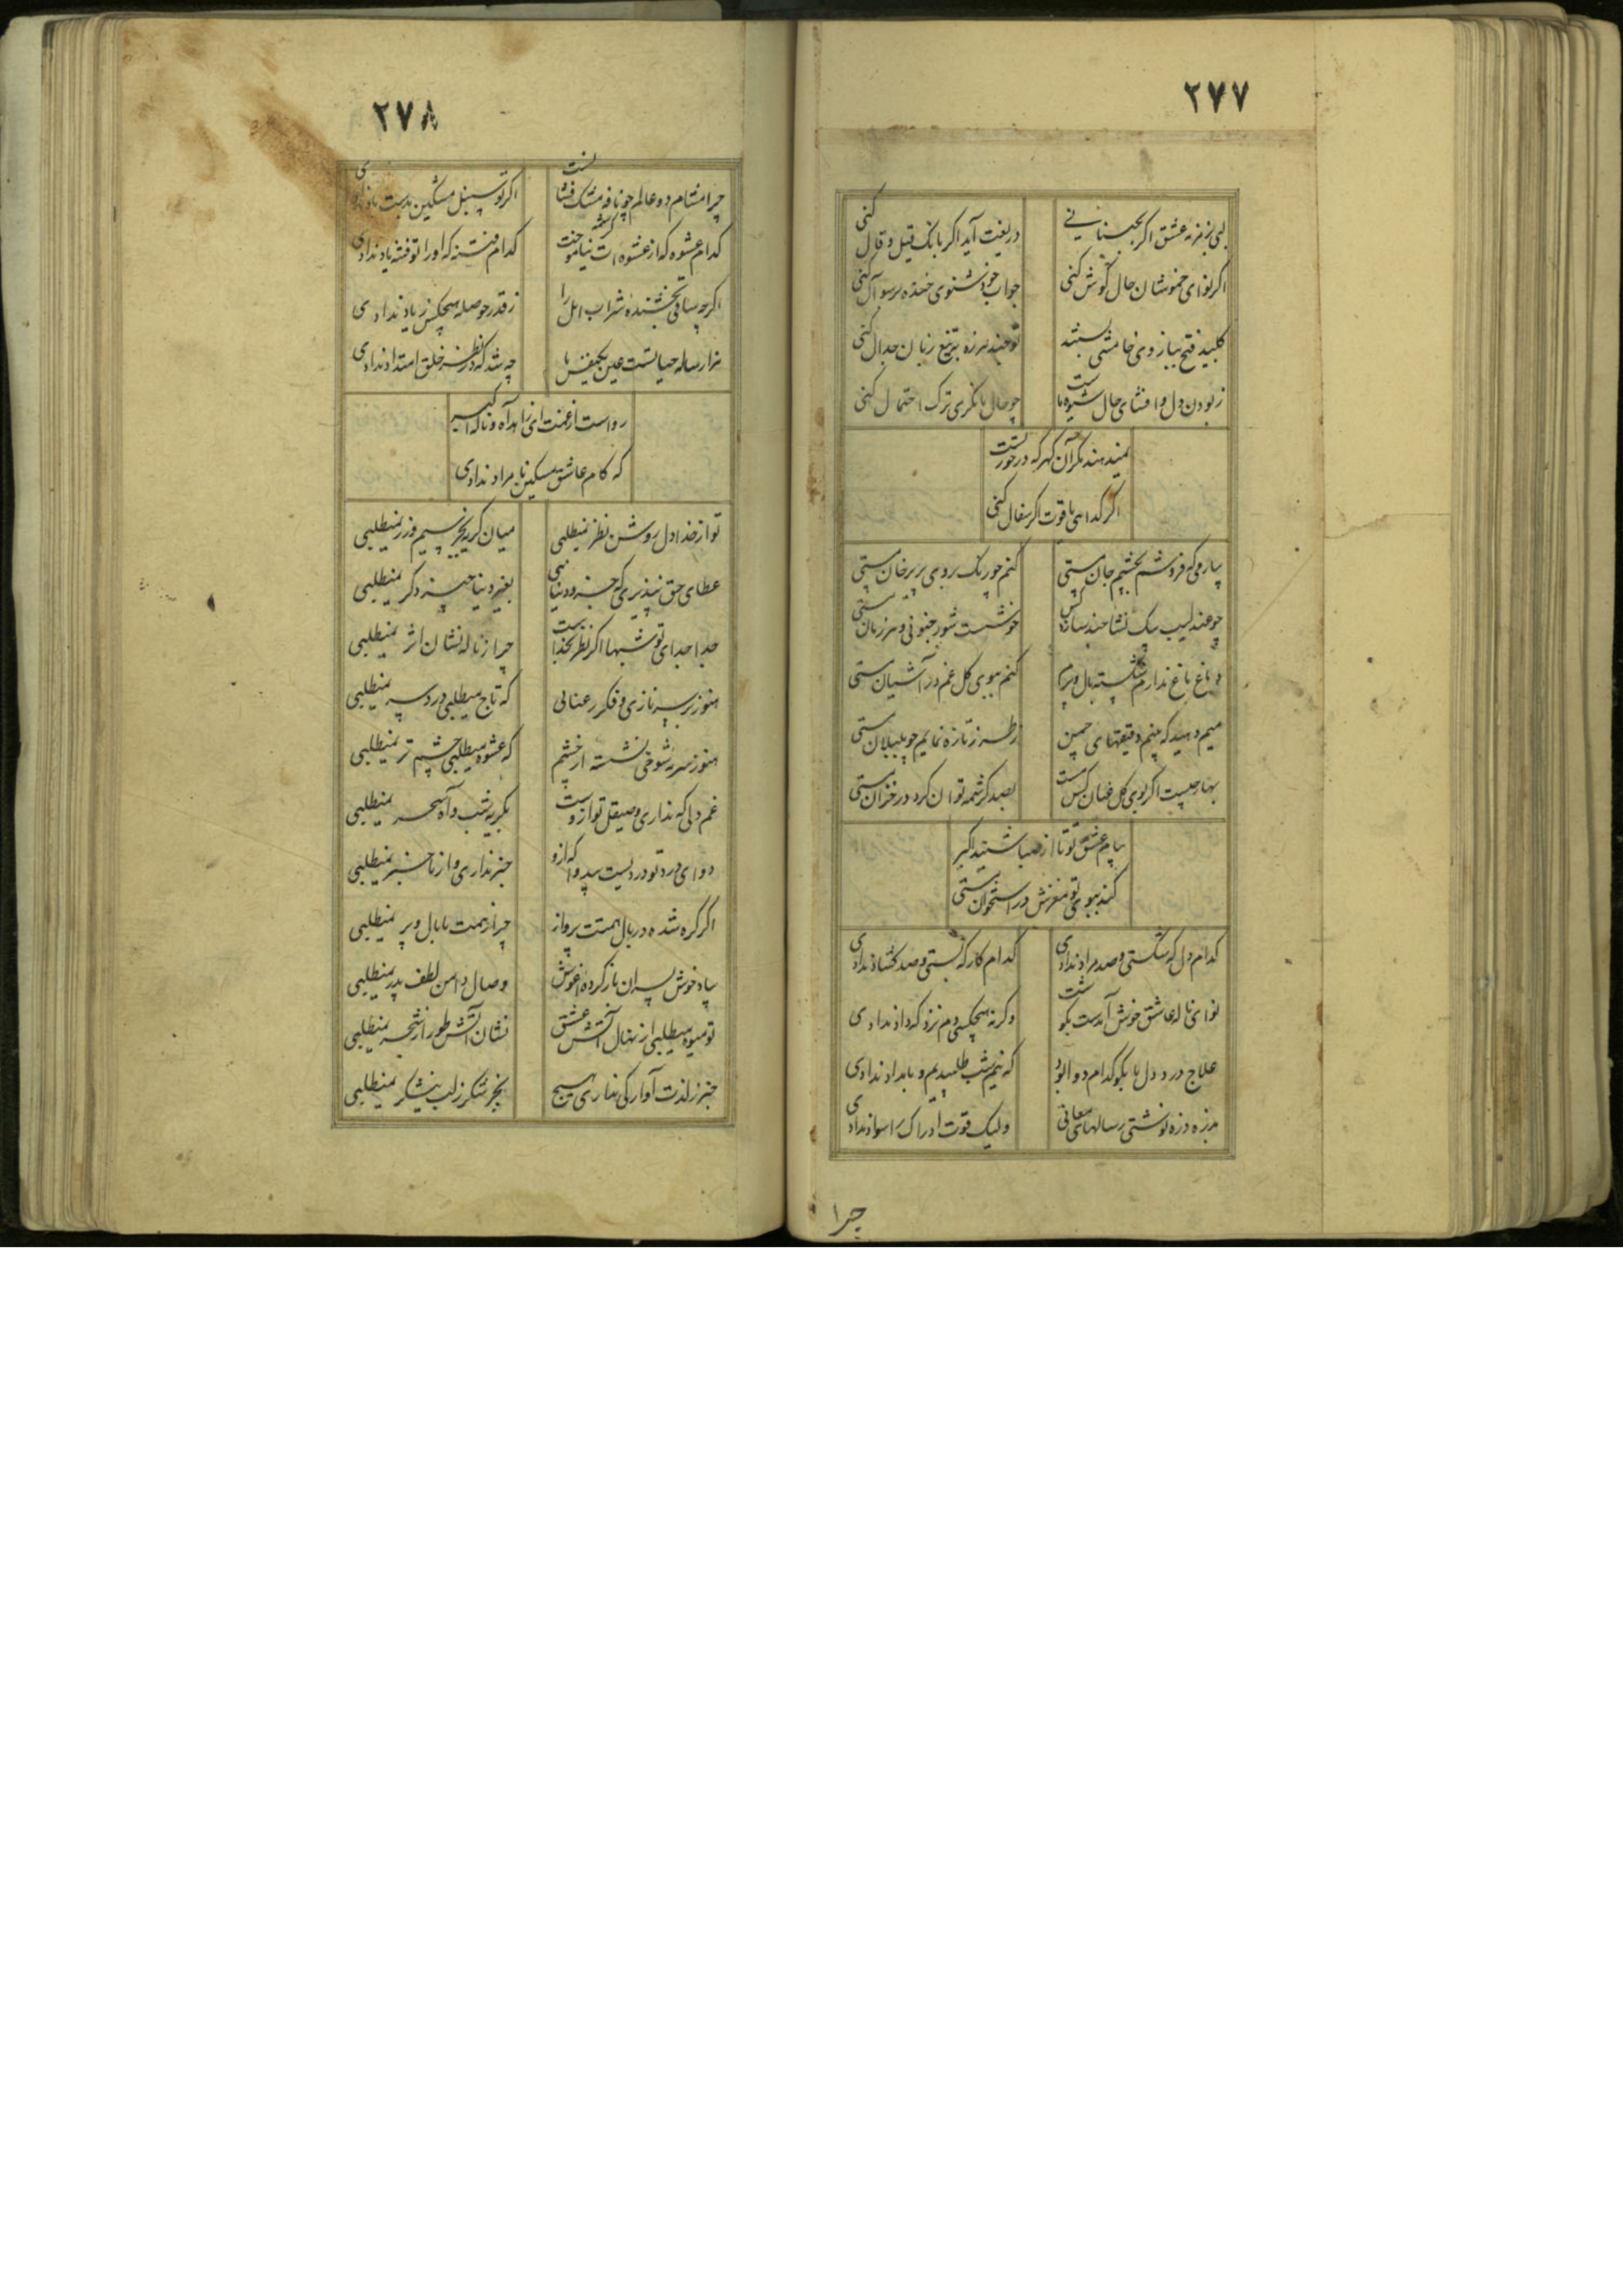 ۲۷۷
لبی بزمزمهٔ عشق اگر بجنبانی
دریغت آید اگر بانک قیل و قال کنی
اگر نوای خموشان حال گوش کنی
جواب خود شنوی خنده بر سوآل کنی
کلید فتح ببازوی خامشی بستند
تو چند هرزه بتیغ زبان جدال کنی
ربودن دل و افشای حال شیوهٔ ماست
چو حال ما نگری ترک احتمال کنی
نمیدهند مگر آن گهر که در خور تست
اگر گدایی یاقوت اگر سفال کنی
بیار می که فروشم بچشم جان مستی
کنم چو رنگ بروی پریرخان مستی
چو عندلیب بیک نشا چند سازد کس
خوشست شور جنونی و هر زمان مستی
دماغ باغ ندارم شکسته بال و پرم
کنم ببوی گل غم در آشیان مستی
میم دهید که بینم دقیقهای چمن
ز طرز تازه نمایم چو بلبلان مستی
بهار چیست اگر بوی گل عنان کش تست
بصد کرشمه توان کرد در خزان مستی
پیام عشق تو تا از صبا شنید اکبر
کند ببوی تو مغزش در استخوان مستی
کدام دل که شکستی و صد مراد ندادی
کدام کار که بستی و صد گشاد ندادی
نوای نالهٔ عاشق خوش آمدست بگوشت
وگرنه هیچکسی دم نزد که داد ندادی
علاج درد دل ما بگو کدام دوا بود
که نیم شب طلبیدیم و بامداد ندادی
بذره ذره نوشتی رسالهای معانی
ولیک قوت ادراک را سواد ندادی
چرا
۲۷۸
چرا مشام دو عالم چو نافه مشک فشانست
اگر تو سنبل مشکین بدست باد ندادی
کدام عشوه که از عشوه‌ات کرشمه نیاموخت
کدام فتنه که او را تو فتنه یاد ندادی
اگرچه ساقی بخشندهٔ شراب امل را
ز قدر حوصله هیچکس زیاد ندادی
هزار ساله حیاتست عین یکنفس ما
چه شد که در نظر خلق امتداد ندادی
رواست از غمت ای زاهد آه و نالهٔ اکبر
که کام عاشق مسکین نامراد ندادی
تو از خدا دل روشن نظر نمیطلبی
میان گریه بجز سیم و زر نمیطلبی
عطای حق نپذیری که جز دو دنیا نی
بغیر دنیا چیز دگر نمیطلبی
جدا جدای تو شبها اگر نظر بخداست
چرا ز ناله نشان اثر نمیطلبی
هنوز بر سر نازی و فکر رعنایی
که تاج میطلبی درد سر نمیطلبی
هنوز سرمهٔ شوخی نشسته از خشم
که عشوه میطلبی چشم تر نمیطلبی
غم دلی که نداری و صیقل تو ازوست
بگریه شب و آه سحر نمیطلبی
دوای درد تو دردیست بیدوا که ازو
خبر نداری و از ما خبر نمیطلبی
اگر گره شده در بال همتت پرواز
چرا ز همت ما بال و پر نمیطلبی
بیاد خوش پسران باز کرده آغوش
وصال دامن لطف پدر نمیطلبی
تو میوه میطلبی از نهال آتش عشق
نشان آتش طور از شجر نمیطلبی
خبر ز لذت آوارگی نداری هیچ
بجز شکر ز لب نیشکر نمیطلبی